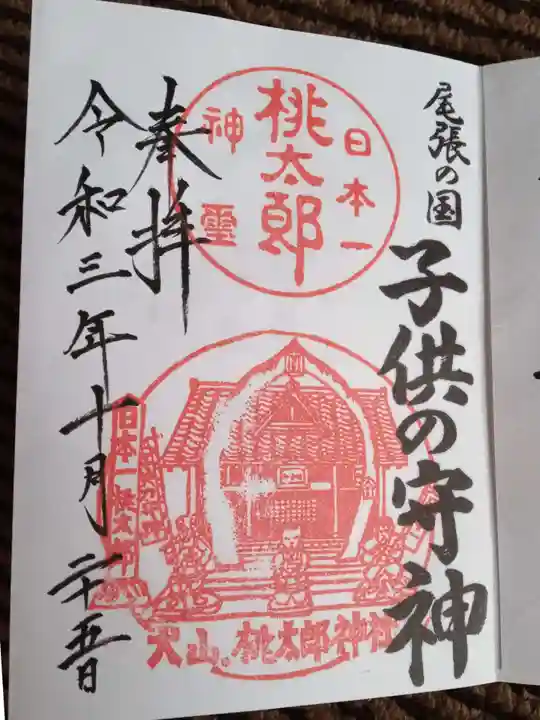 尾張の国
子供の守神
日本一
桃太郎
神霊
奉拝
令和三年十月二十五日
日本一桃太郎
犬山。桃太郎神社